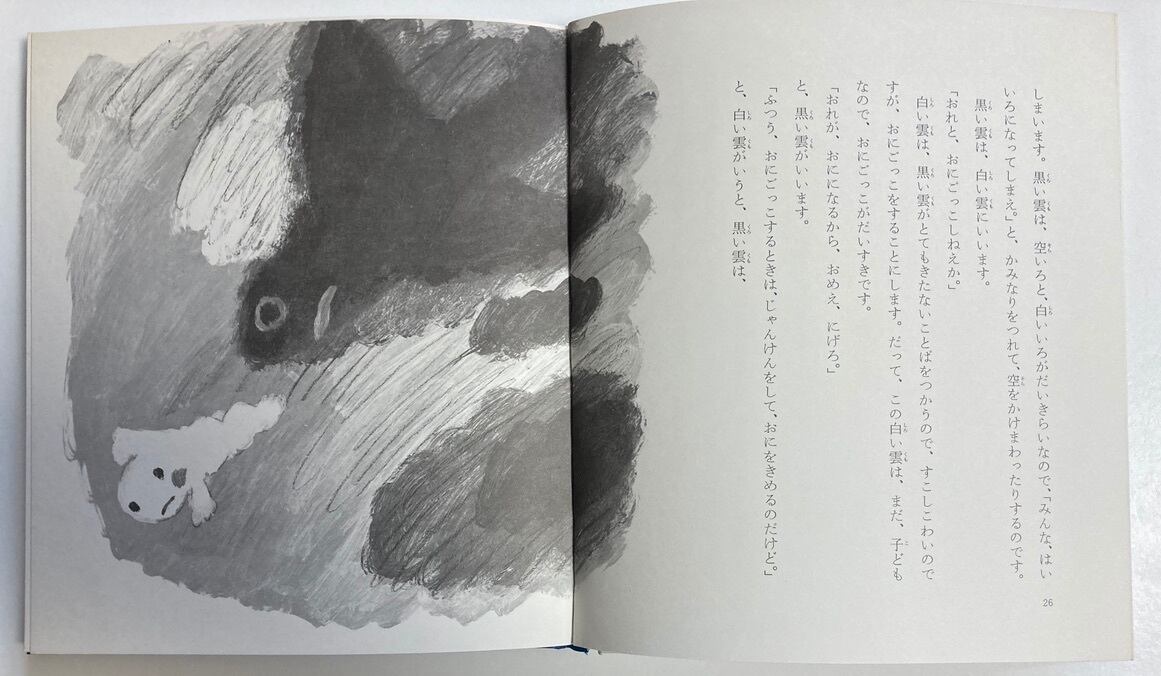 しまいます。黒い雲は、空いろと、白いいろがだいきらいなので、「みんな、はい
いろになってしまえ。」と、かみなりをつれて、空をかけまわったりするのです。
黒い雲は、白い雲にいいます。
「おれと、おにごっこしねえか。」
白い雲は、黒い雲がとてもきたないことばをつかうので、すこしこわいので
すが、おにごっこをすることにします。だって、この白い雲は、まだ、子ども
なので、おにごっこがだいすきです。
「おれが、おにになるから、おめえ、にげろ。」
と、黒い雲がいいます。
「ふつう、おにごっこするときは、じゃんけんをして、おにをきめるのだけど。」
と、白い雲がいうと、黒い雲は、
26